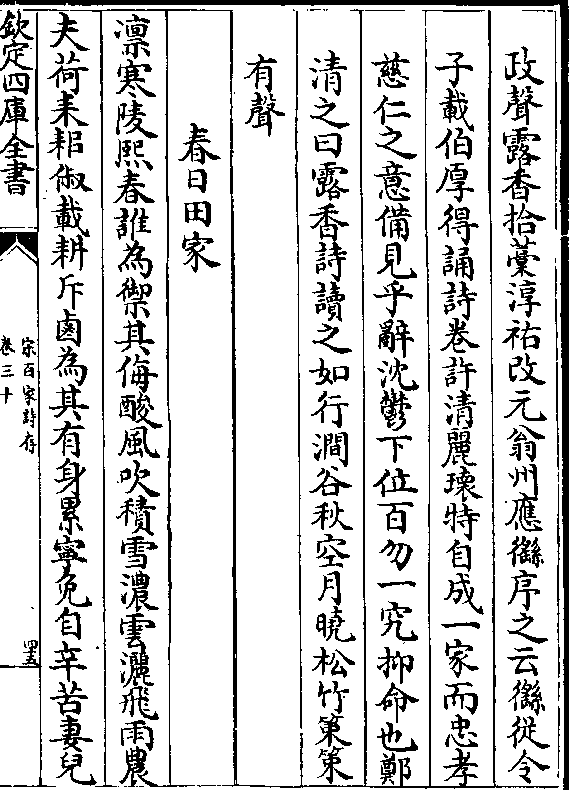 政聲露香拾藳淳祐改元翁州應𦇧序之云𦇧從令
子載伯厚得誦詩卷許清麗瓌特自成一家而忠孝
慈仁之意備見乎辭沈鬱下位百勿一究抑命也鄭
清之曰露香詩讀之如行澗谷秋空月曉松竹策策
有聲
春日田家
凛寒陵熙春誰為禦其侮酸風吹積雪濃雲灑飛雨農
夫荷耒耜俶載耕斥鹵為其有身累寧免自辛苦妻兒
欽定四庫全書
宋百家詩存
卷三十
四五